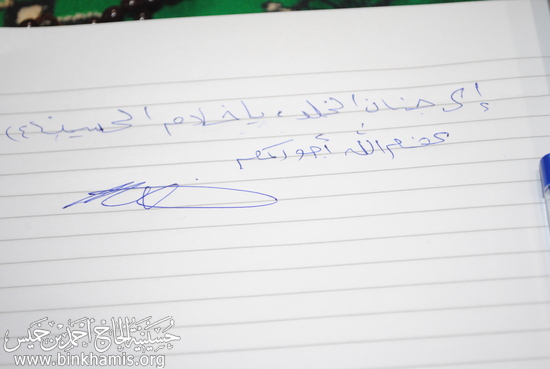 إلى جنان الخلد يا خدام الحسين (ع)
عظم الله أجوركم
حسينية الحاج أحمد بن خميس
www.binkhamis.org